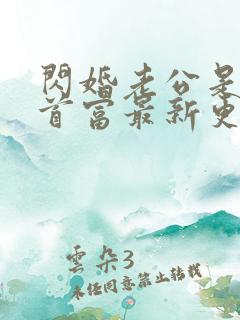 閃婚老公是
首富最新更
雲朵3
未經同意禁止轉載